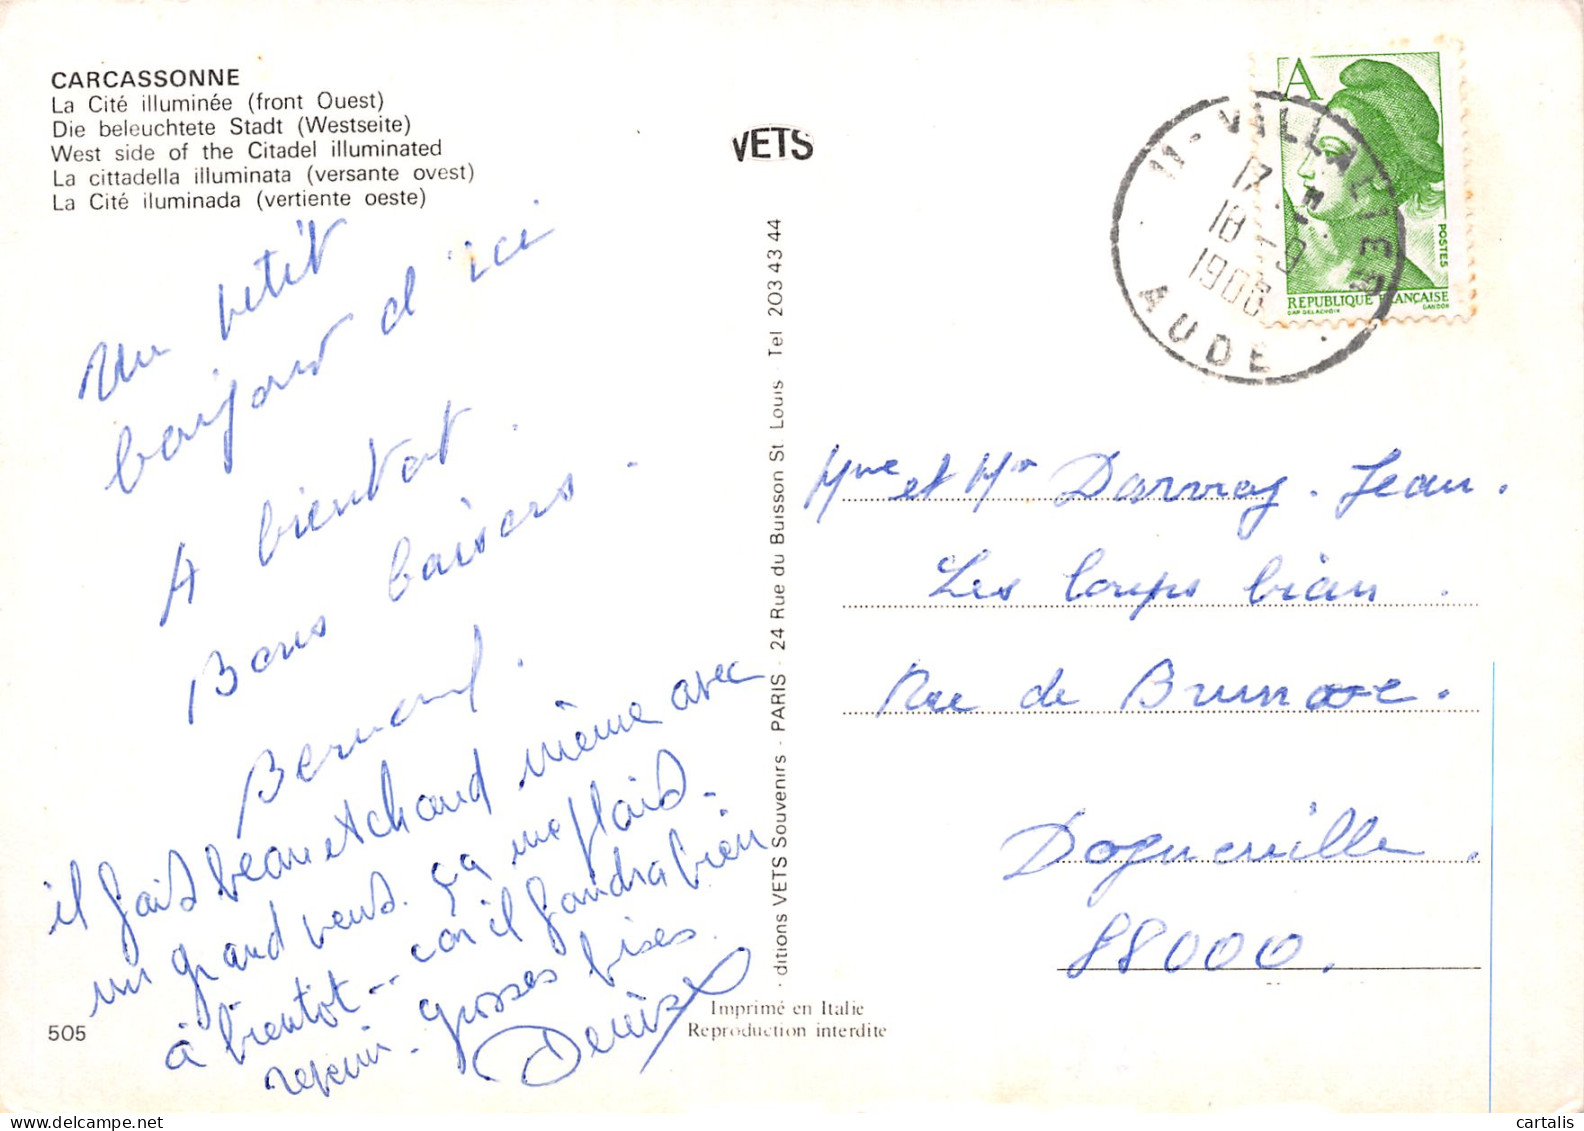 CARCASSONNE
La Cité illuminée (front Ouest)
Die beleuchtete Stadt (Westseite)
West side of the Citadel illuminated
La cittadella illuminata (versante ovest)
La Cité iluminada (vertiente oeste)
Un petit
bonjour d'ici
A bientot.
Bons baisers.
Bernard.
il fait beau et chaud même avec
un grand vent. ça me plait.
à bientôt -- car il faudra bien
revenir. grosses bises.
Denise
505
VETS
ditions VETS Souvenirs - PARIS - 24 Rue du Buisson St Louis - Tel 203 43 44
Imprimé en Italie
Reproduction interdite
A
POSTES
REPUBLIQUE FRANÇAISE
CAP DELACROIX
GANDON
11-VILLALIER
17 H
18 -9
AUDE
Mme et Mr Darvoy. Jean.
Les loups bian.
Rue de
Dogneville.
88000.
cartalis